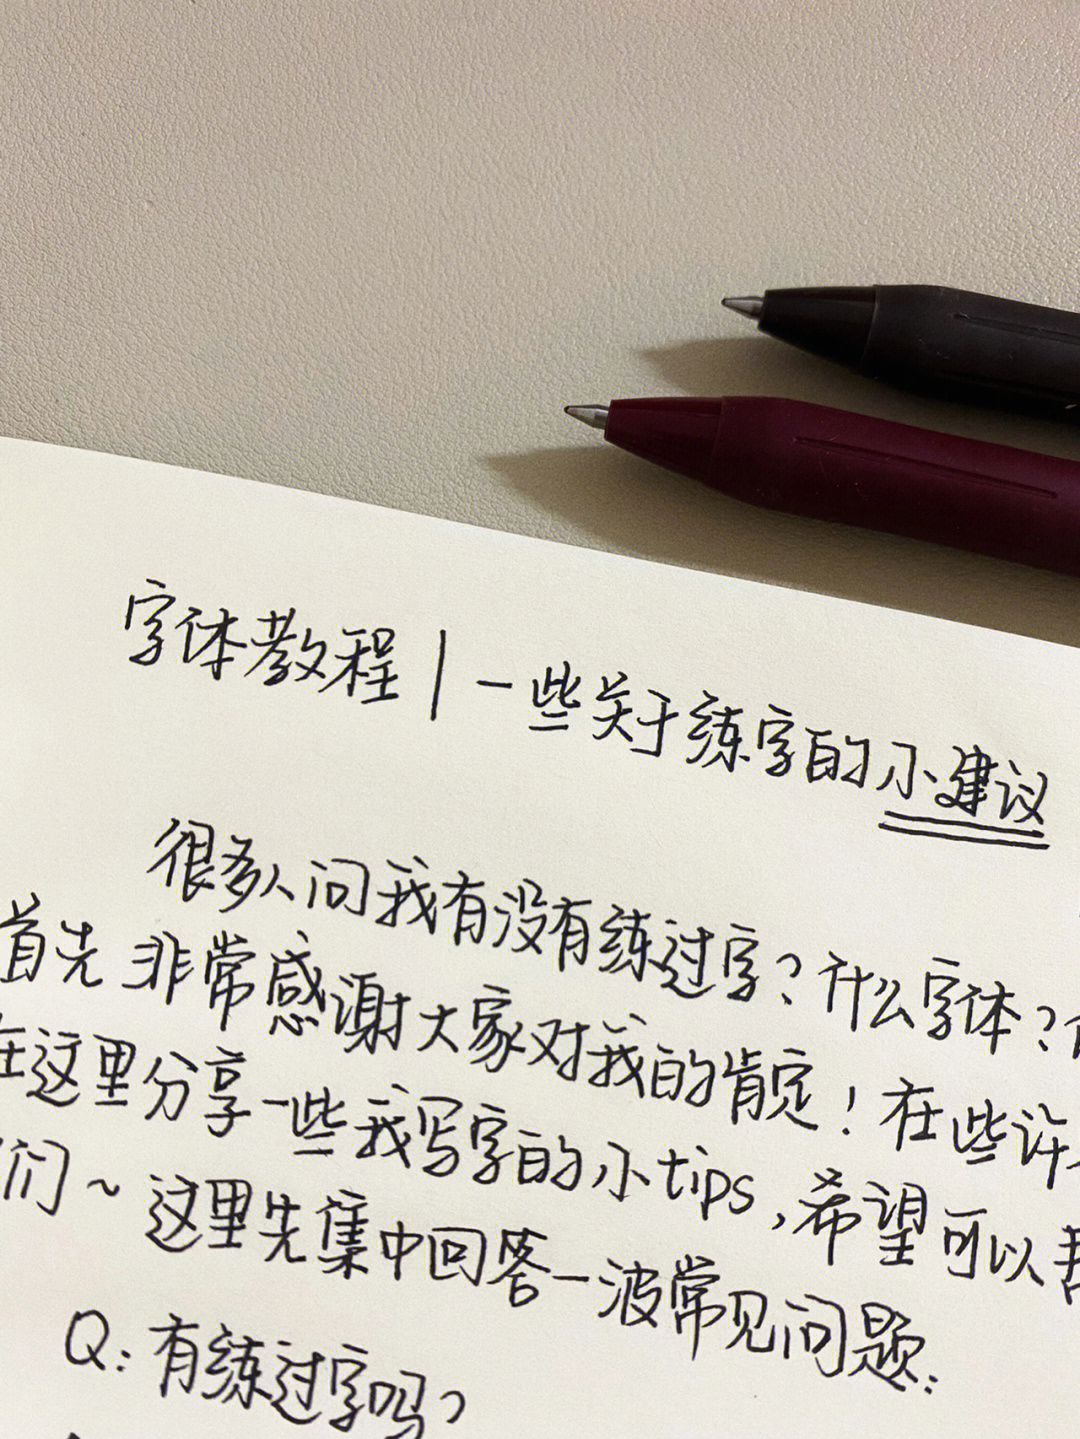 字体教程 | 一些关于练字的小建议
很多人问我有没有练过字？什么字体？
首先非常感谢大家对我的肯定！在些许
在这里分享一些我写字的小tips，希望可以
们～这里先集中回答一波常见问题：
Q：有练过字吗？